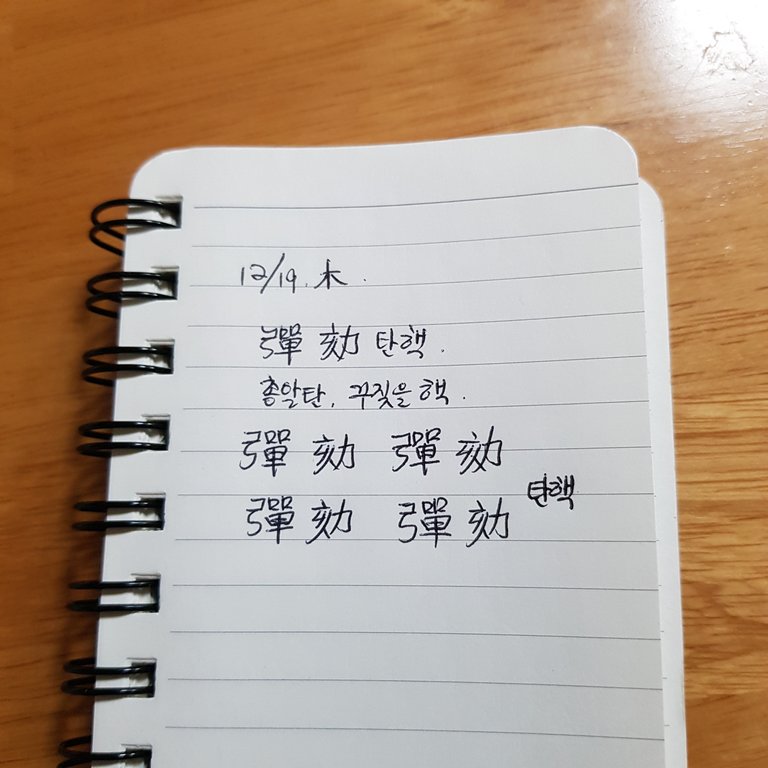 12/19. 木.
彈劾 탄핵.
총알탄, 꾸짖을 핵.
彈劾 彈劾
彈劾 彈劾 탄핵